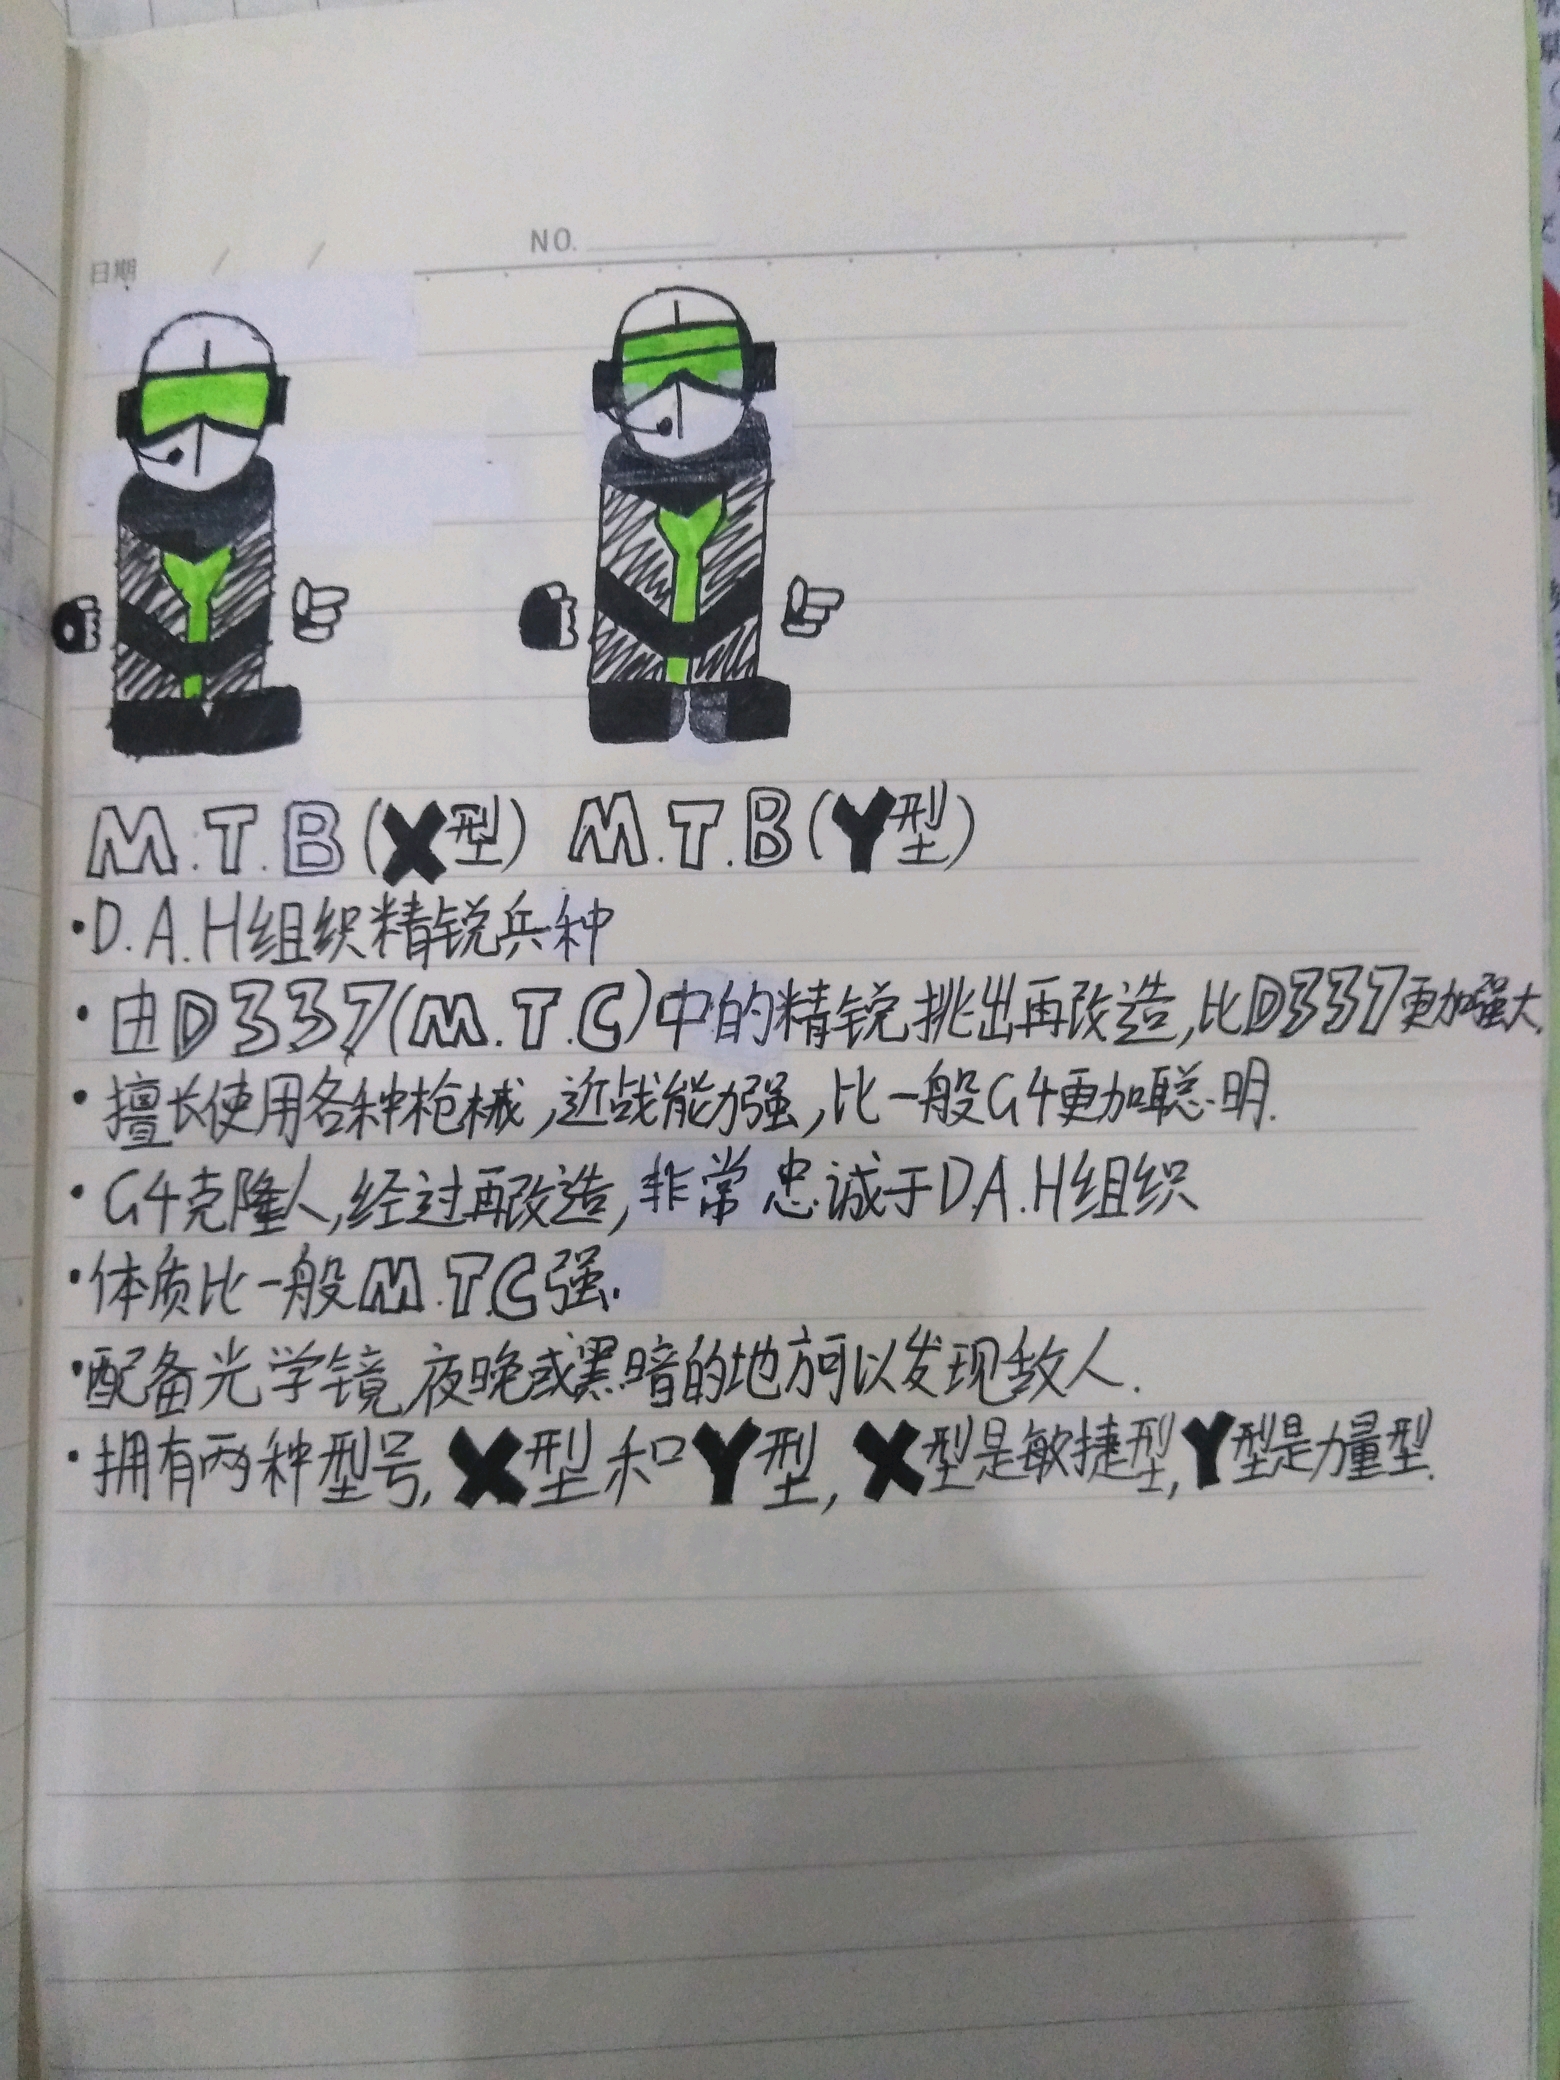 日期 / / NO.
M.T.B(X型) M.T.B(Y型)
·D.A.H组织精锐兵种
·由D337(M.T.C)中的精锐挑出再改造,比D337更加强大.
·擅长使用各种枪械,近战能力强,比一般G4更加聪明.
·G4克隆人,经过再改造,非常忠诚于D.A.H组织
·体质比一般M.T.C强.
·配备光学镜,夜晚或黑暗的地方可以发现敌人.
·拥有两种型号,X型和Y型,X型是敏捷型,Y型是力量型.